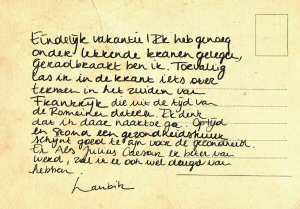 Eindelijk vakantie! Ik heb genoeg
onder lekkende kranen gelegen,
geradbraakt ben ik. Toevallig
las ik in de krant iets over
termen in het zuiden van
Frankrijk die uit de tijd van
de Romeinen dateren. Ik denk
dat ik daar naartoe ga. Op tijd
en stond een gezondheidskuur
schijnt goed te zijn voor de gezondheid.
En als Julius Caesar er beter van
werd, zal ik er ook wel deugd van
hebben
Lambik